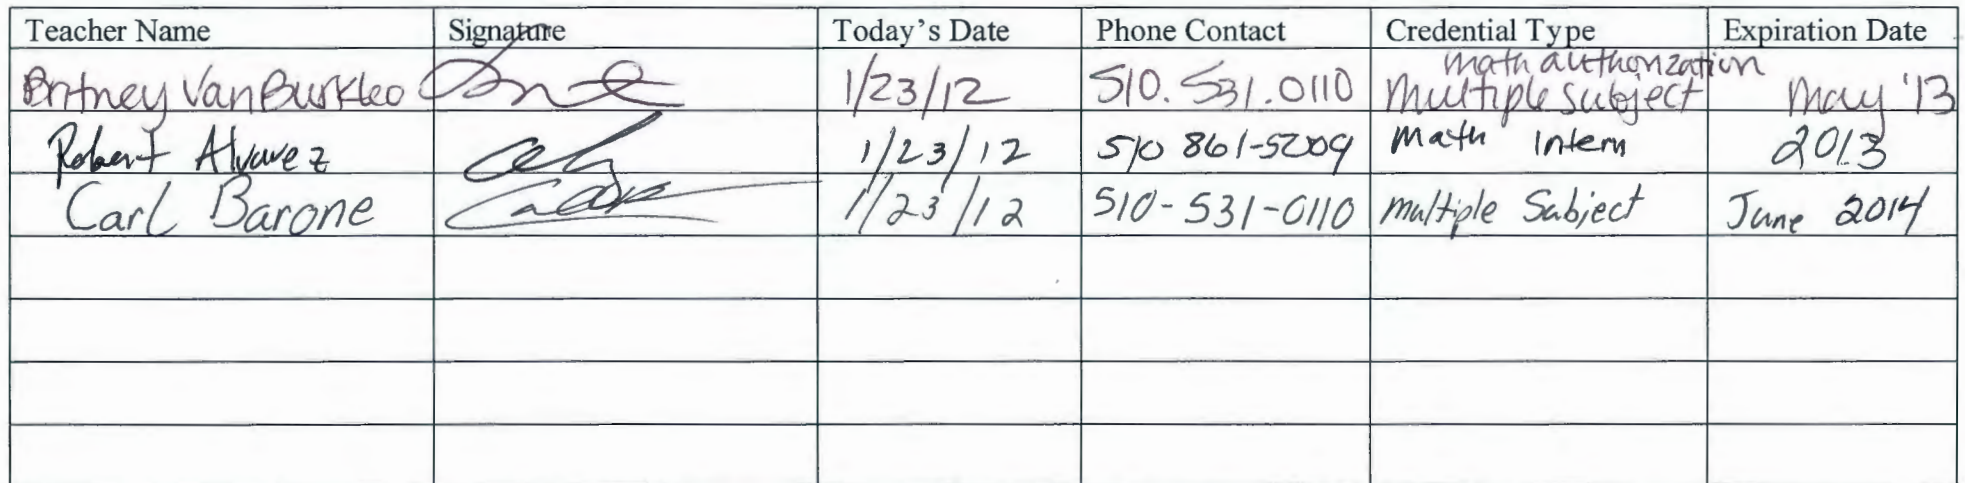 Teacher Name Signature Today's Date Phone Contact Credential Type Expiration Date
math authorization
Britney VanBurkleo 1/23/12 510.531.0110 Multiple Subject May '13
Robert Alvarez 1/23/12 510 861-5209 Math Intern 2013
Carl Barone 1/23/12 510-531-0110 Multiple Subject June 2014